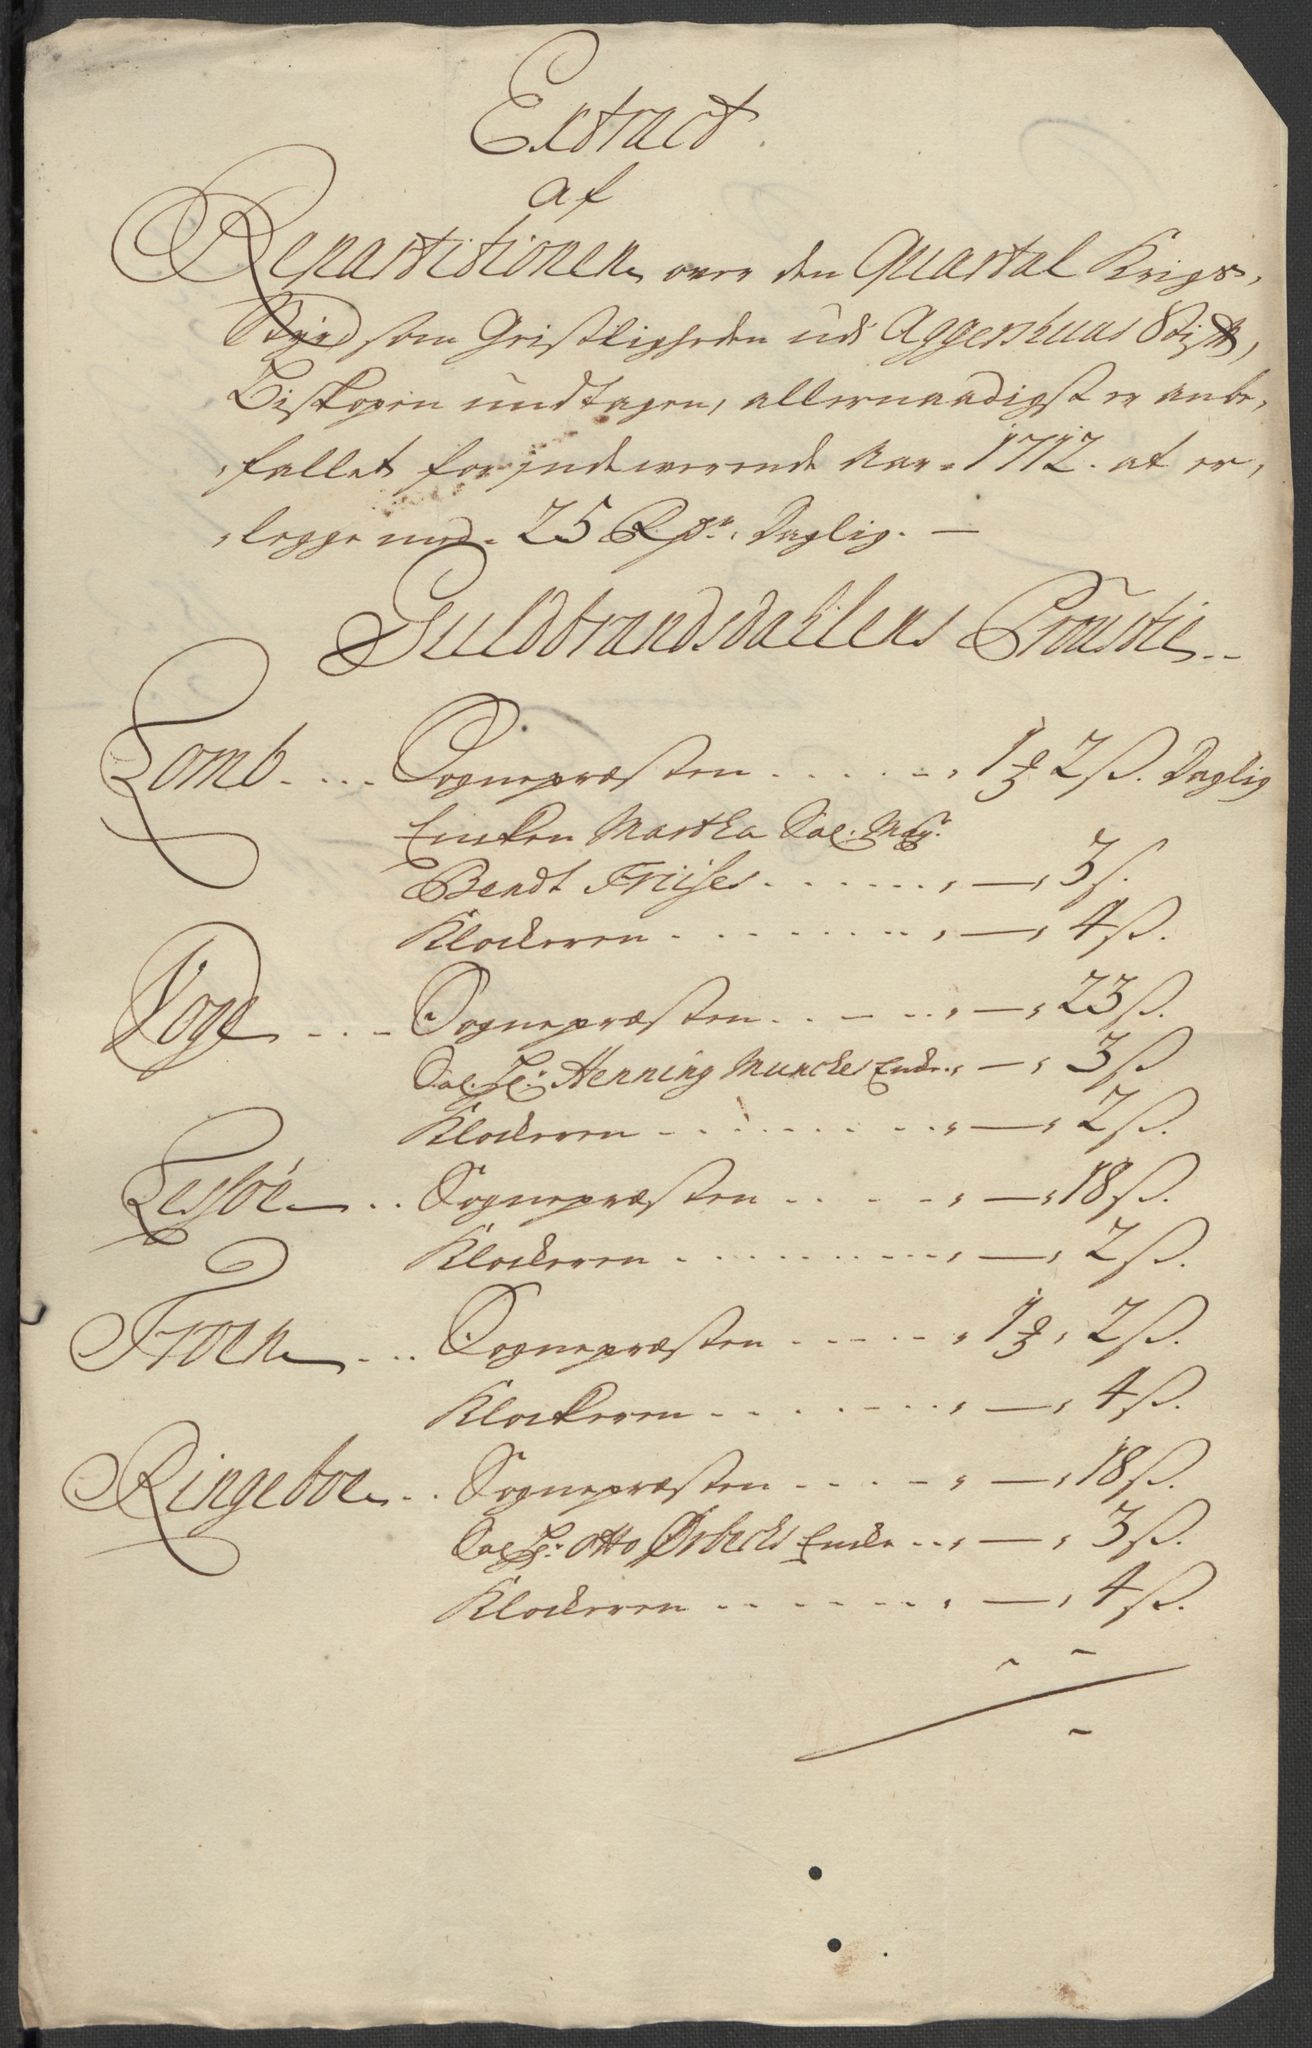 Extract
af
Repartitionen over den Quartal Krigs,
Styr som Geistligheden udi Aggershuus Stift,
Biskopen undtagen, allernaadigst er anbe,
,fallet for indeværende Aar 1712. at er,
,legge med 25 Rdr. Daglig. —
Guldbrandsdahlens Proustie
Lomb . . . . Sognepræsten . . . . . . 1 ℳ 2 ß. Daglig
Enken Martha Sal. Mag:
Bendt Friises . . . . . . . — 3 ß.
Klockeren . . . . . . . . . — 4 ß.
Voge . . . Sognepræsten . . . . . . — 23 ß.
Sal. Hr: Henning Munches Enke . — 3 ß
Klockeren . . . . . . . . . — 2 ß.
Lessøe . . Sognepræsten . . . . . — 18 ß.
Klockeren . . . . . . . . . — 2 ß.
Froen . . . Sognepræsten . . . . . . 1 ℳ 2 ß.
Klockeren . . . . . . . . — 4 ß.
Ringeboe . . Sognepræsten . . . . . — 18 ß.
Sal. Hr: Otto Ørbechs Enke . . — 3 ß.
Klockeren . . . . . . . . — 4 ß.